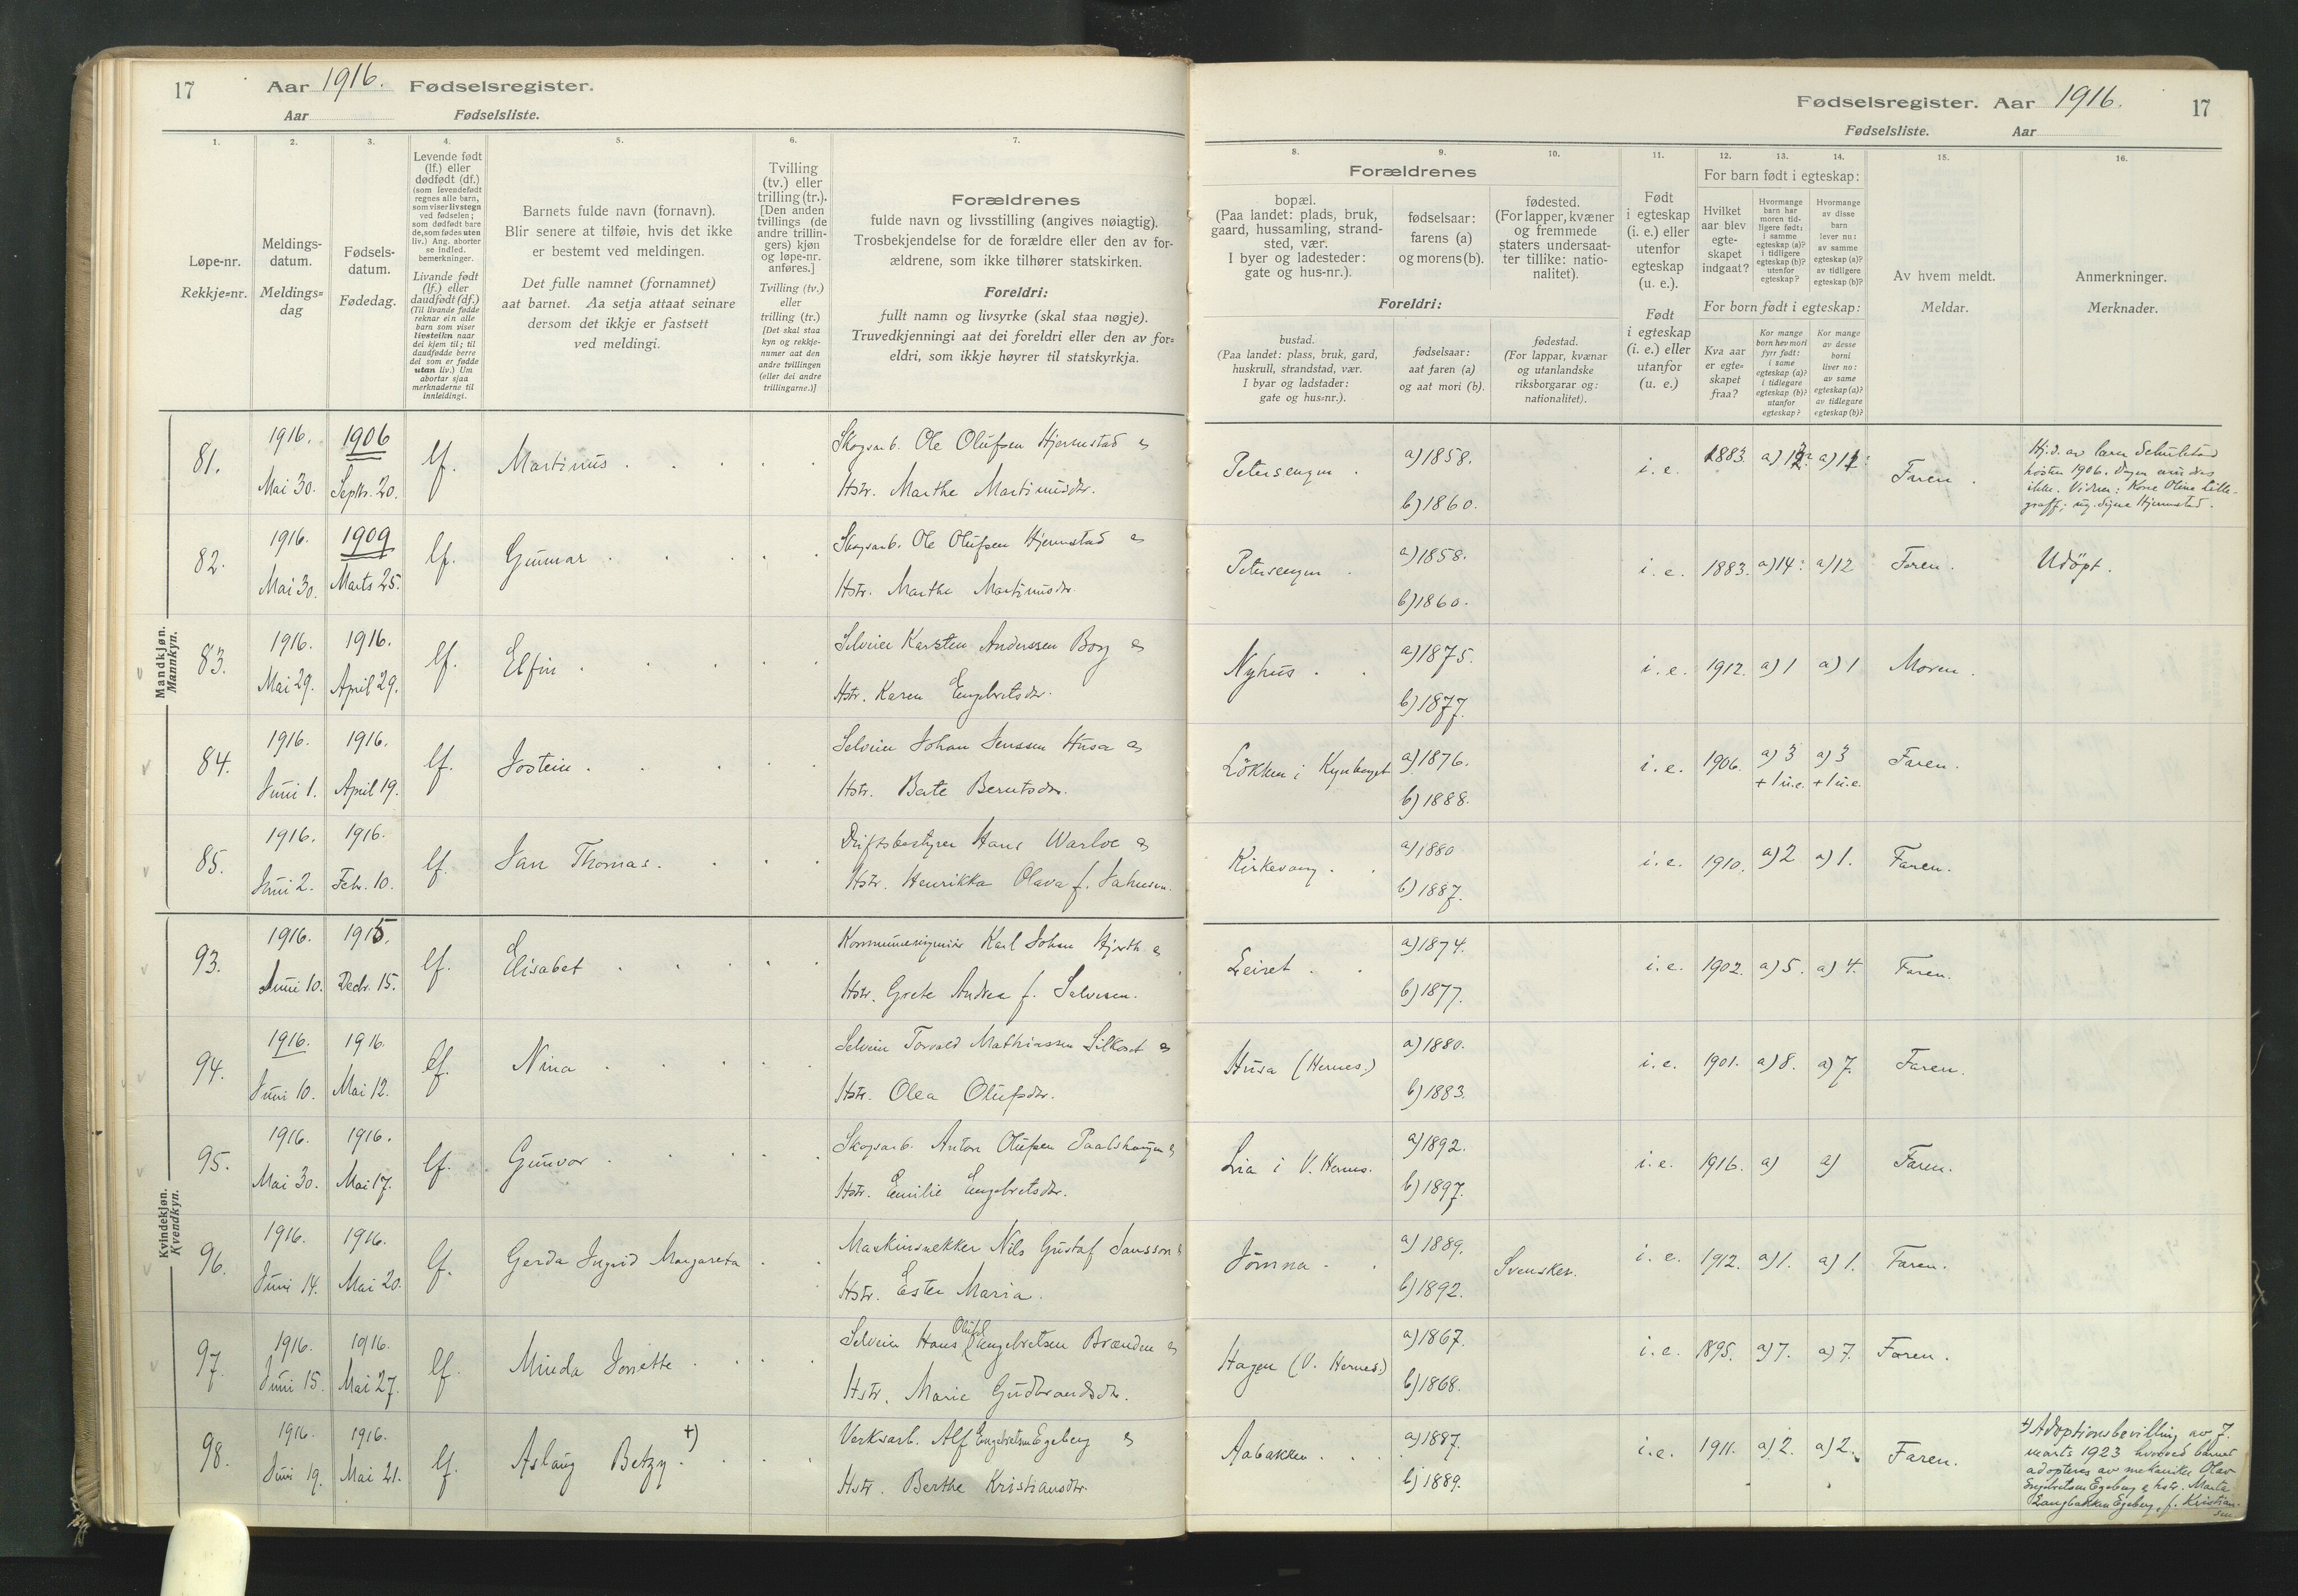 17
Aar 1916. Fødselsregister.
Aar
Fødselsliste.
1.
2.
3.
4.
5.
6.
7.
Løpe-nr.
Rekkje=nr.
Meldings-
datum.
Meldings=
dag
Fødsels-
datum.
Fødedag.
Levende født
(lf.) eller
dødfødt (df.)
(som levendefødt
regnes alle barn,
som viser livstegn
ved fødselen;
som dødfødt bare
de, som fødes uten
liv.) Ang. aborter
se indled.
bemerkninger.
Livande født
(lf.) eller
daudfødt (df.)
(Til livande fødde
reknar ein alle
barn som viser
livsteikn naar
dei kjem til; til
daudfødde berre
dei som er fødde
utan liv.) Um
abortar sjaa
merknaderne til
innleidingi.
Barnets fulde navn (fornavn).
Blir senere at tilføie, hvis det ikke
er bestemt ved meldingen.
Det fulle namnet (fornamnet)
aat barnet. Aa setja attaat seinare
dersom det ikkje er fastsett
ved meldingi.
Tvilling
(tv.) eller
trilling (tr.).
[Den anden
tvillings (de
andre trillin-
gers) kjøn
og løpe-nr.
anføres.]
Tvilling (tv.)
eller
trilling (tr.)
[Det skal staa
kyn og rekkje-
numer aat den
andre tvillingen
(eller dei andre
trillingarne.)]
Forældrenes
fulde navn og livsstilling (angives nøiagtig).
Trosbekjendelse for de forældre eller den av for-
ældrene, som ikke tilhører statskirken.
Foreldri:
fullt namn og livsyrke (skal staa nøgje).
Truvedkjenningi aat dei foreldri eller den av for=
eldri, som ikkje høyrer til statskyrkja.
Mandkjøn.
Mannkyn.
81.
1916.
Mai 30.
1906
Septr. 20.
lf.
Martinus
Skogsarb. Ole Olufsen Hjernstad &
Hstr. Marthe Martinusdtr.
82.
1916.
Mai 30.
1909
Marts 25.
lf.
Gunnar
Skogsarb. Ole Olufsen Hjernstad &
Hstr. Marthe Martinusdtr.
83.
1916.
Mai 29.
1916.
April 29.
lf.
Elfin
Selveier Karsten Anderssen Borg &
Hstr. Karen Engebretsdtr.
84.
1916.
Juni 1.
1916.
April 19.
lf.
Jostein
Selveier Johan Jenssen Husa &
Hstr. Berte Berntsdtr.
85.
1916.
Juni 2.
1916.
Febr. 10.
lf.
Jan Thomas.
Driftsbestyrer Hans Warloe &
Hstr. Henrikka Olava f. Jahnsen.
Kvindekjøn.
Kvendkyn.
93.
1916.
Juni 10.
1915.
Decbr. 15.
lf.
Elisabet
Kommuneingeniør Karl Johan Hjorth &
Hstr. Grete Andrea f. Salvesen.
94.
1916.
Juni 10.
1916.
Mai 12.
lf.
Nina
Selveier Torvald Mathiassen Silkoset &
Hstr. Olea Olufsdtr.
95.
1916.
Mai 30.
1916.
Mai 17.
lf.
Gunvor
Skogsarb. Anton Olufsen Paalshaugen &
Hstr. Emilie Engebretsdtr.
96.
1916.
Juni 14.
1916.
Mai 20.
lf.
Gerda Ingrid Margareta
Maskinsnekker Nils Gustaf Jansson &
Hstr. Ester Maria.
97.
1916.
Juni 15.
1916.
Mai 27.
lf.
Minda Jonette
Selveier Hans Oluf Engebretsen Brænden &
Hstr. Marie Gudbrandsdtr.
98.
1916.
Juni 19.
1916.
Mai 21.
lf.
Aslaug Betzy. +)
Verksarb. Alf Engebretsen Egeberg &
Hstr. Berthe Kristiansdtr.
Fødselsregister. Aar 1916.
17
Fødselsliste.
Aar
8.
9.
10.
11.
12.
13.
14.
15.
16.
Forældrenes
bopæl.
(Paa landet: plads, bruk,
gaard, hussamling, strand-
sted, vær.
I byer og ladesteder:
gate og hus-nr.).
fødselsaar:
farens (a)
og morens (b).
fødested.
(For lapper, kvæner
og fremmede
staters undersaat-
ter tillike: natio-
nalitet).
Foreldri:
bustad.
(Paa landet: plass, bruk, gard,
huskrull, strandstad, vær.
I byar og ladstader:
gate og hus=nr.).
fødselsaar:
aat faren (a)
og aat mori (b).
fødestad.
(For lappar, kvænar
og utanlandske
riksborgarar og:
nationalitet).
Født
i egteskap
(i. e.) eller
utenfor
egteskap
(u. e.).
Født
i egteskap
(i. e.) eller
utanfor
(u. e.)
For barn født i egteskap:
Hvilket
aar blev
egte-
skapet
indgaat?
Hvormange
barn har
moren tid-
ligere født:
i samme
egteskap (a)?
i tidligere
egteskap (b)?
utenfor
egteskap?
Hvormange
av disse
barn
lever nu:
av samme
egteskap (a)?
av tidligere
egteskap (b)?
For born født i egteskap:
Kva aar
er egte=
skapet
fraa?
Kor mange
born hev mori
fyrr født:
i same
egteskap (a)?
i tidlegare
egteskap (b)?
utanfor
egteskap?
Kor mange
av desse
borni
liver no:
av same
egteskap (a)?
av tidlegare
egteskap (b)?
Av hvem meldt.
Meldar.
Anmerkninger.
Merknader.
Petersengen
a) 1858.
b) 1860.
i. e.
1883.
Faren
Hj.d. av lærer Schulstad
høsten 1906. Dagen
ikke. Vidner: Kone Oline Lille-
; ug. Signe Hjernstad.
Petersengen
a) 1858.
b) 1860.
i. e.
1883.
a) 14
a) 12
Faren.
Udöpt.
Nyhus
a) 1875.
b) 1877.
i. e.
1912.
a) 1
a) 1
Moren.
Lökken i Kynberget
a) 1876.
b) 1888.
i. e.
1906.
a) 3
+ 1 u.e.
a) 3
+ 1 u.e.
Faren.
Kirkevang.
a) 1880
b) 1887.
i. e.
1910.
a) 2
a) 1.
Faren.
Leiret
a) 1874.
b) 1877.
i. e.
1902.
a) 5.
a) 4.
Faren.
Husa (Hernes.)
a) 1880.
b) 1883.
i. e.
1901.
a) 8.
a) 7.
Faren.
Lia i V. Hernes.
a) 1892.
b) 1897.
i. e.
1916.
a)
a)
Faren.
Jömna
a) 1889.
b) 1892.
Svensker.
i. e.
1912.
a) 1.
a) 1.
Faren.
Hagen (V. Hernes.)
a) 1867.
b) 1868.
i. e.
1895.
a) 7.
a) 7.
Faren.
Aabakken
a) 1887.
b) 1889.
i. e.
1911.
a) 2.
a) 2.
Faren.
+) Adoptionsbevilling av 7.
marts 1923 hvorved barnet
adopteres av mekaniker Olav
Engebretsen Egeberg & hstr. Marta
Langbakken Egeberg, f. Kristian-
sen